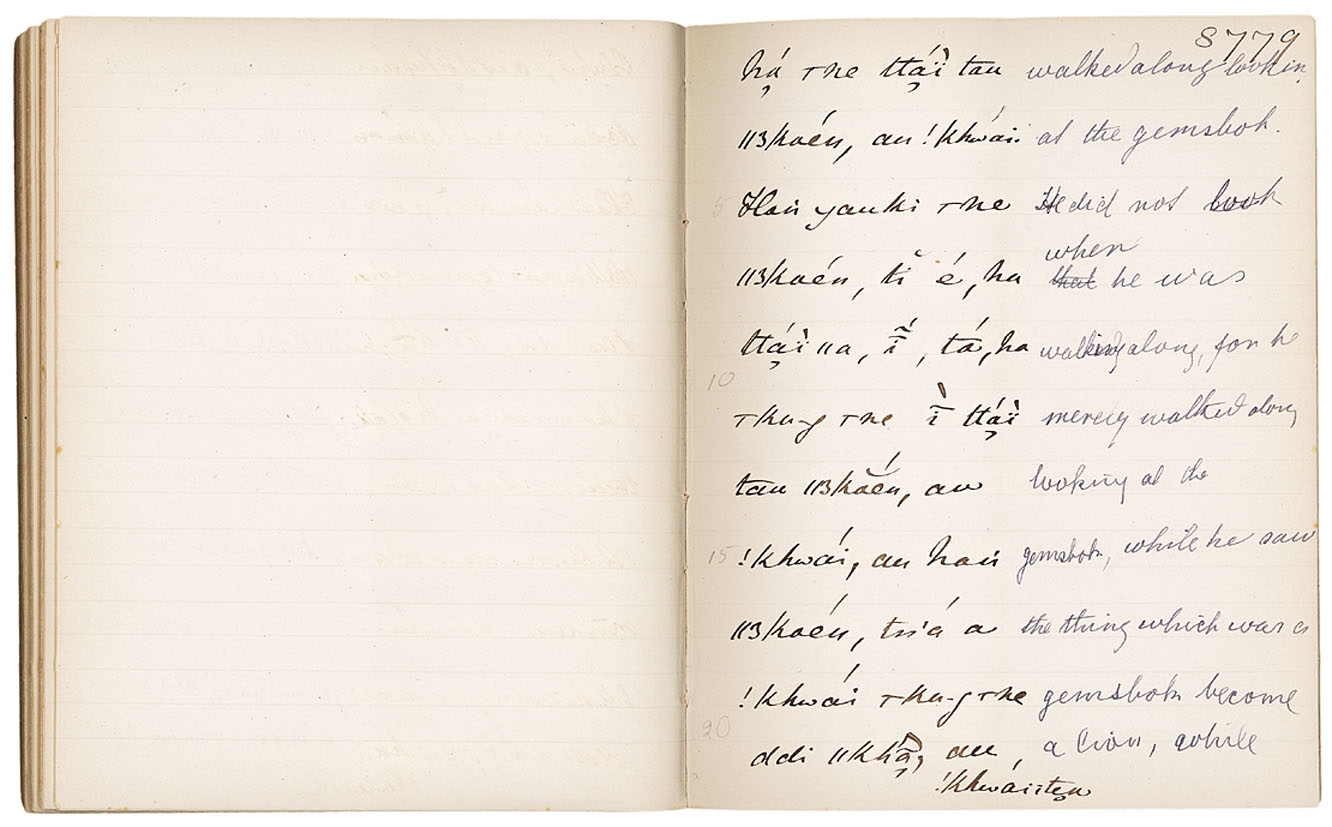 8779
há ꞇne ttáï tau walked along lookin
ǁɜkoén, au !khwái. at the gemsbok.
5 Hañ yauki ꞇne He did not look
when
ǁɜkoén, tĭ é, ha that he was
ttáï ǁa, ī́, tá, ha walking along, for he
10
ꞇku-g ꞇne ī̀ ttáï merely walked along
tau ǁɜkŏén, au looking at the
15 !khwái, au hañ gemsbok, while he saw
ǁɜkoén, tsá a the thing which was a
!khwái ꞇku-g ꞇne gemsbok become
20
ddi ǁkhã, au a lion, while
!khwáïtẹn